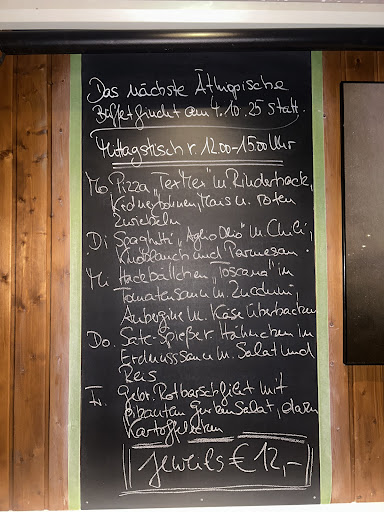 Das nächste Äthiopische
Büffet findet am 4.10.25 statt.
Mittagstisch v. 12.00-15.00 Uhr
Mo. Pizza "TexMex" m. Rinderhack,
Kidneybohnen, Mais u. roten
Zwiebeln
Di Spaghetti "Aglio Olio" m. Chili,
Knoblauch und Parmesan.
Mi. Hackbällchen "Toscana" in
Tomatensauce m. Zucchini,
Aubergine m. Käse überbacken
Do. Sate-Spieße v. Hähnchen in
Erdnusssauce m. Salat und
Reis
Fr. Gebr. Rotbarschfilet mit
pikanten Gurkensalat, dazu
Kartoffelecken
jeweils € 12,-